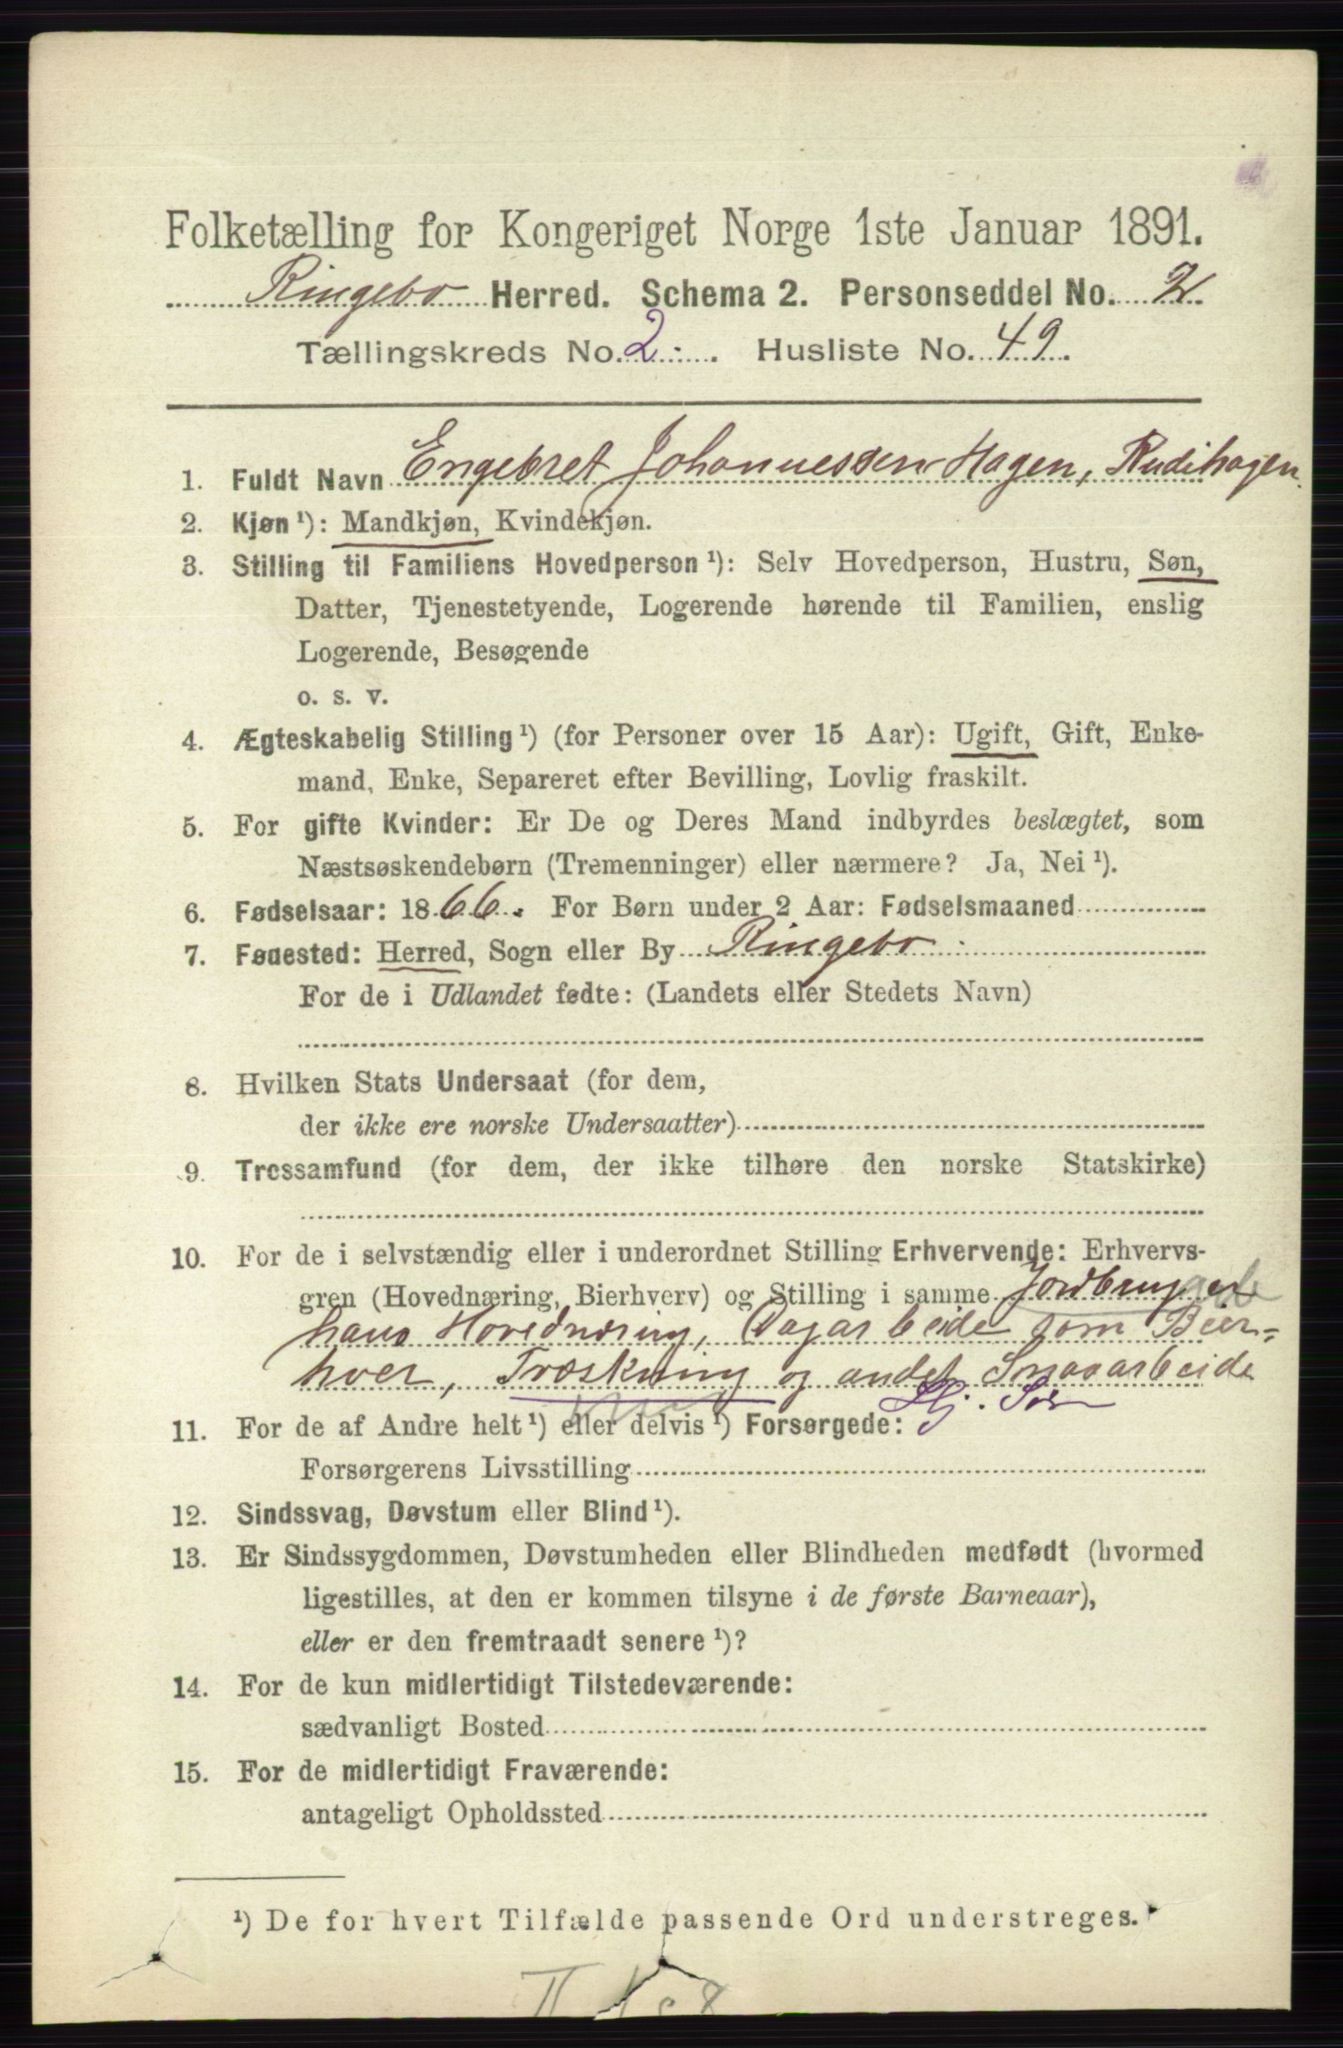 Folketælling for Kongeriget Norge 1ste Januar 1891.
Ringebo Herred. Schema 2. Personseddel No. 2.
Tællingskreds No. 2. Husliste No. 49.
1. Fuldt Navn Engebret Johannessen Hagen, Rudihagen.
2. Kjøn ¹): Mandkjøn, Kvindekjøn.
3. Stilling til Familiens Hovedperson ¹): Selv Hovedperson, Hustru, Søn,
Datter, Tjenestetyende, Logerende hørende til Familien, enslig
Logerende, Besøgende
o. s. v.
4. Ægteskabelig Stilling ¹) (for Personer over 15 Aar): Ugift, Gift, Enke-
mand, Enke, Separeret efter Bevilling, Lovlig fraskilt.
5. For gifte Kvinder: Er De og Deres Mand indbyrdes beslægtet, som
Næstsøskendebørn (Tremenninger) eller nærmere? Ja, Nei ¹).
6. Fødselsaar: 1866. For Børn under 2 Aar: Fødselsmaaned
7. Fødested: Herred, Sogn eller By Ringebo
For de i Udlandet fødte: (Landets eller Stedets Navn)
8. Hvilken Stats Undersaat (for dem,
der ikke ere norske Undersaatter)
9. Trossamfund (for dem, der ikke tilhøre den norske Statskirke)
10. For de i selvstændig eller i underordnet Stilling Erhvervende: Erhvervs-
gren (Hovednæring, Bierhverv) og Stilling i samme Jordbruget
hans Hovednæring, Dagarbeide som Bier-
hver, Træskning og andet Smaaarbeide
11. For de af Andre helt ¹) eller delvis ¹) Forsørgede: Hj. Søn
Forsørgerens Livsstilling
12. Sindssvag, Døvstum eller Blind ¹).
13. Er Sindssygdommen, Døvstumheden eller Blindheden medfødt (hvormed
ligestilles, at den er kommen tilsyne i de første Barneaar),
eller er den fremtraadt senere ¹)?
14. For de kun midlertidigt Tilstedeværende:
sædvanligt Bosted
15. For de midlertidigt Fraværende:
antageligt Opholdssted
¹) De for hvert Tilfælde passende Ord understreges.
II